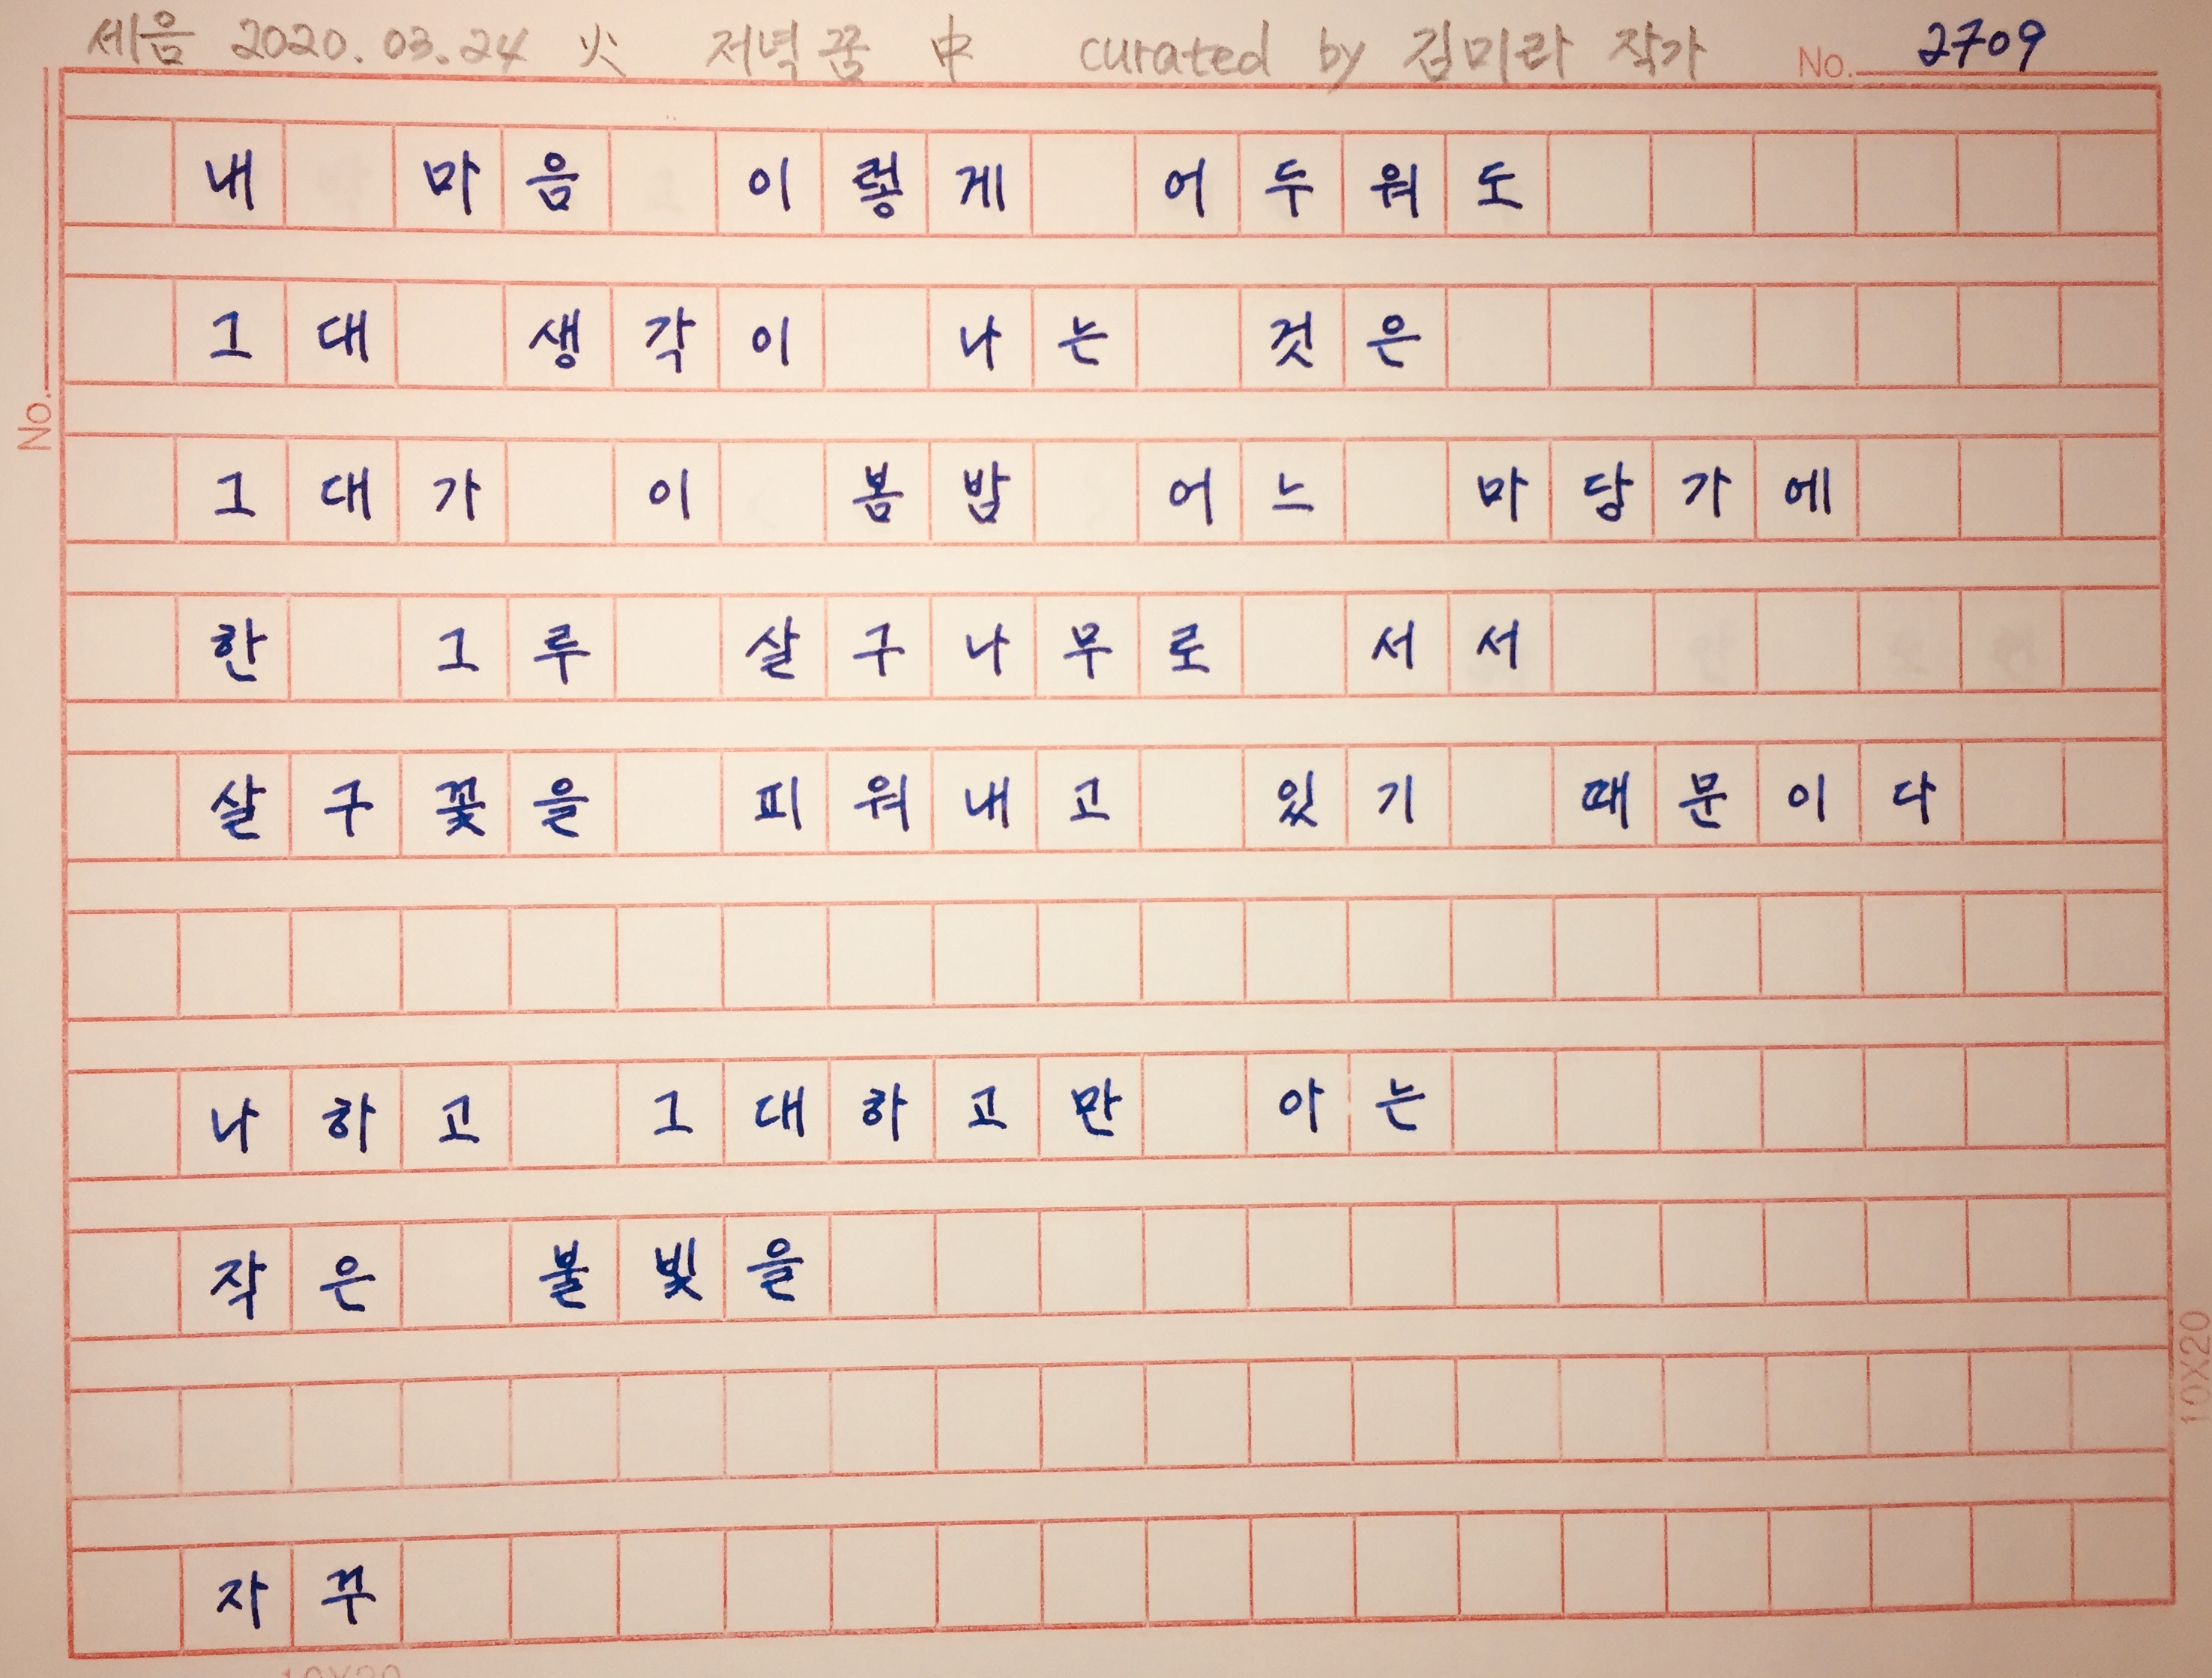 세음 2020.03.24 火 저녁꿈 中 curated by 김미라 작가 No. 2709
내 마음 이렇게 어두워도
그대 생각이 나는 것은
그대가 이 봄밤 어느 마당가에
No.
한 그루 살구나무로 서서
살구꽃을 피워내고 있기 때문이다
나하고 그대하고만 아는
작은 불빛을
자꾸
10X20
10X20